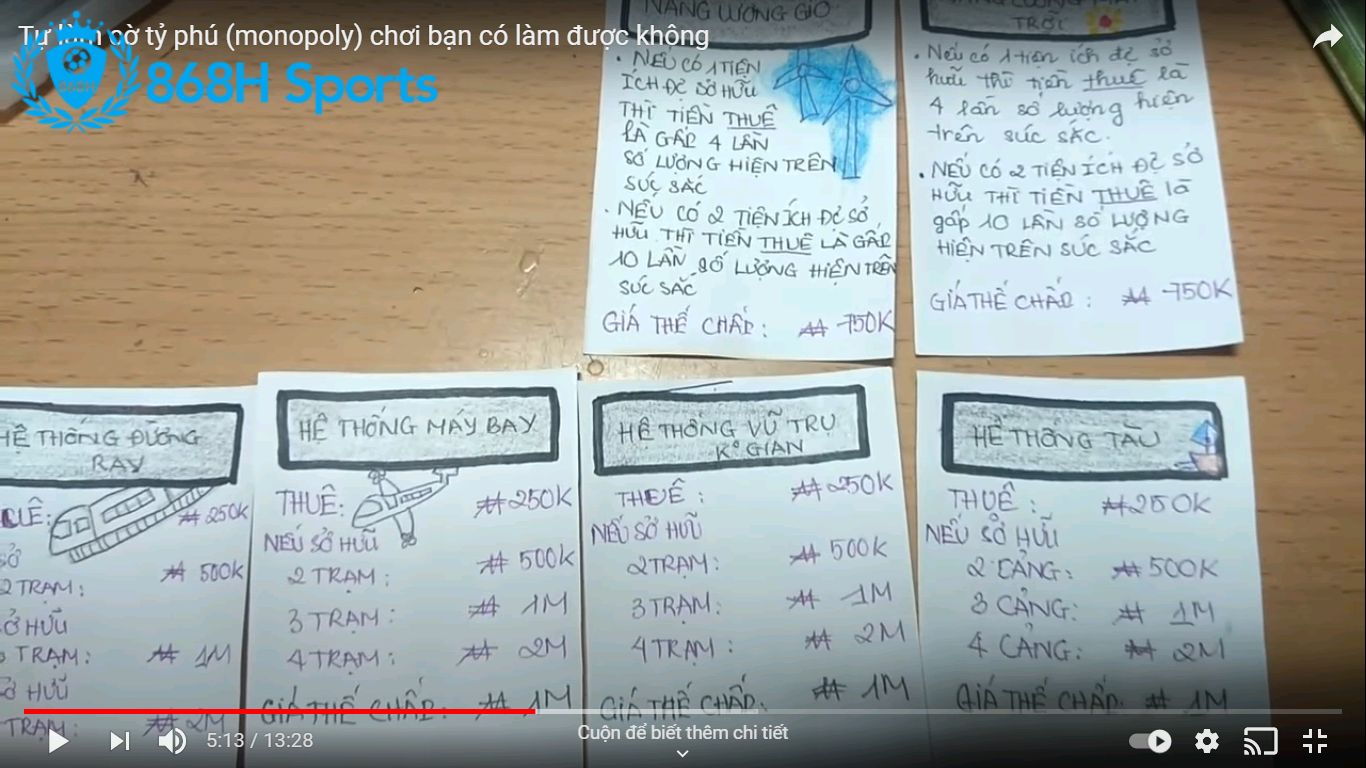 Tự làm cờ tỷ phú (monopoly) chơi bạn có làm được không
868H Sports
NĂNG LƯỢNG GIÓ
. NẾU CÓ 1 TIỆN
ÍCH ĐC SỞ HỮU
THÌ TIỀN THUÊ
LÀ GẤP 4 LẦN
SỐ LƯỢNG HIỆN TRÊN
SÚC SẮC
. NẾU CÓ 2 TIỆN ÍCH ĐC SỞ
HỮU THÌ TIỀN THUÊ LÀ GẤP
10 LẦN SỐ LƯỢNG HIỆN TRÊN
SÚC SẮC
GIÁ THẾ CHẤP: 750K
TRỜI
. Nếu có 1 tiện ích đc sở
hữu thì tiền thuê là
4 lần số lượng hiện
trên súc sắc.
. NẾU CÓ 2 TIỆN ÍCH ĐC SỞ
HỮU THÌ TIỀN THUÊ là
gấp 10 LẦN SỐ LƯỢNG
HIỆN TRÊN SÚC SẮC
GIÁ THẾ CHẤP: 750K
HỆ THỐNG ĐƯỜNG
RAY
UÊ: 250K
SỞ
2 TRẠM: 500K
SỞ HỮU
TRẠM: 1M
SỞ HỮU
TRẠM: 2M
HỆ THỐNG MÁY BAY
THUÊ: 250K
NẾU SỞ HỮU
2 TRẠM: 500K
3 TRẠM: 1M
4 TRẠM: 2M
GIÁ THẾ CHẤP: 1M
HỆ THỐNG VŨ TRỤ
K° GIAN
THUÊ: 250K
NẾU SỞ HỮU
2 TRẠM: 500K
3 TRẠM: 1M
4 TRẠM: 2M
GIÁ THẾ CHẤP: 1M
HỆ THỐNG TÀU
THUÊ: 250K
NẾU SỞ HỮU
2 CẢNG: 500K
3 CẢNG: 1M
4 CẢNG: 2M
GIÁ THẾ CHẤP: 1M
5:13 / 13:28
Cuộn để biết thêm chi tiết